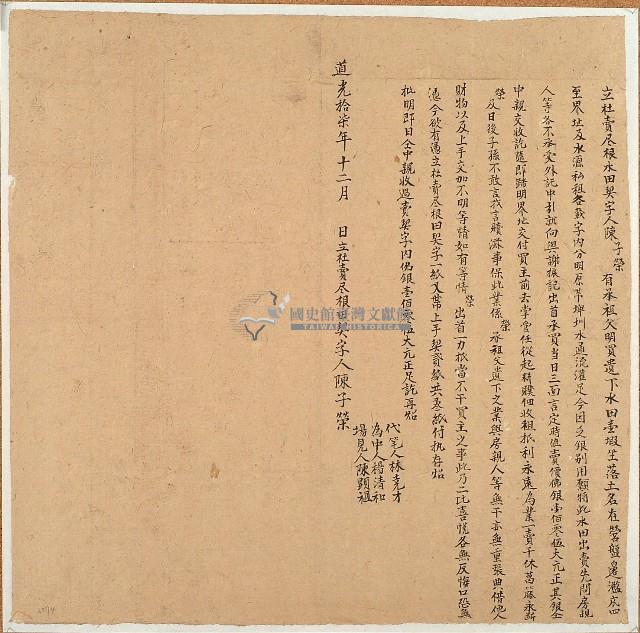 立杜賣尽根水田契字人陳子榮　有承祖父明買遺下水田壹塅坐落土名在營盤邊濫底四
至界址及水源私租登載字內分明原帶埤圳水通流灌足今因乏銀別用愿將此水田出賣先問房親
人等各不承受外託中引就向與謝振記出首承買當日三面言定時值賣價佛銀壹佰零伍大元正其銀仝
中親交收訖隨即踏明界址交付買主前去掌管任從起耕贌佃收租抵利永遠為業一賣千休葛藤永斷
榮及日後子孫不敢言找言贖滋事保此業係榮承祖父遺下之業與房親人等無干亦無重張典借他人
財物以及上手交加不明等情如有等情榮出首一力抵當不干買主之事此乃二比喜悅各無反悔口恐無
憑今欲有憑立杜賣尽根田契字一紙又帶上手契貳紙共叁紙付执存炤
批明即日仝中親收過賣契字內佛銀壹佰零伍大元正足訖再炤
代笔人林克才
為中人楊清和
場見人陳顕祖
道光拾柒年十二月　日立杜賣尽根田契字人陳子榮
國史館臺灣文獻館
TAIWAN HISTORICA